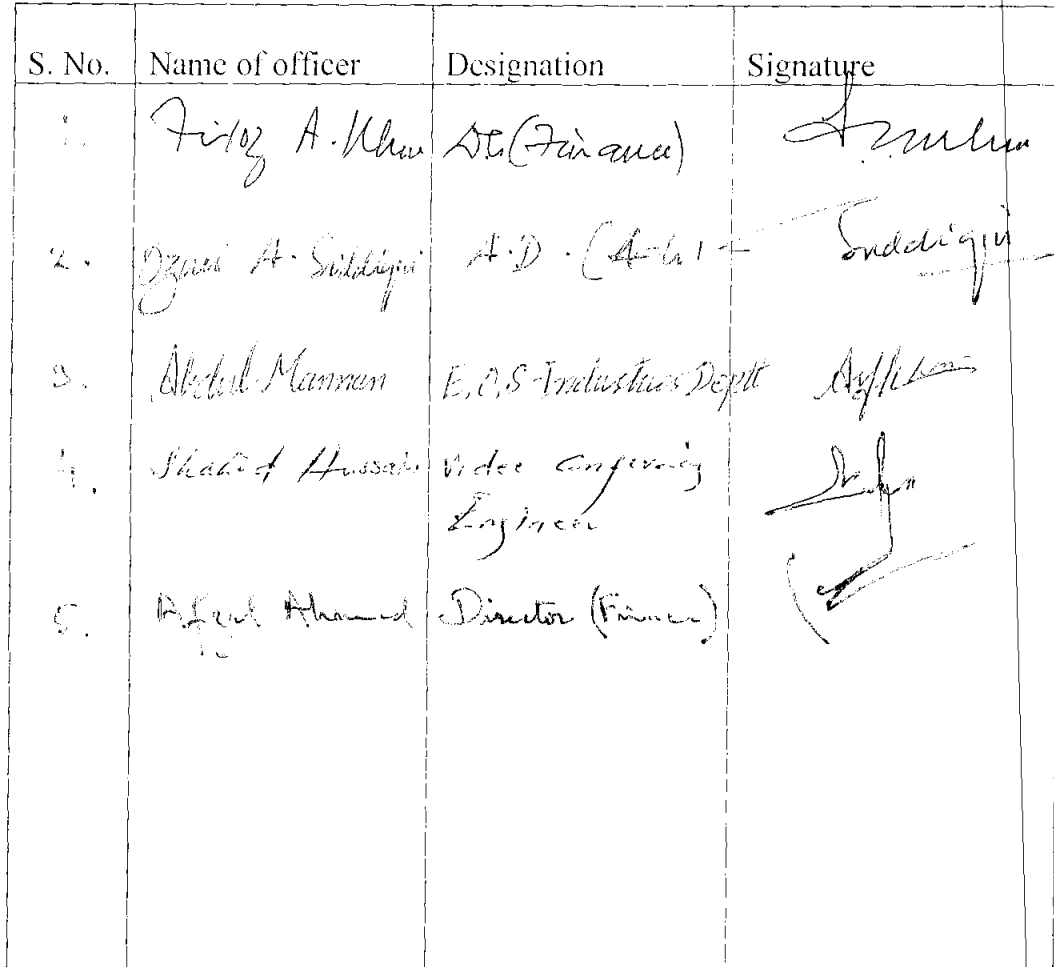 S. No. Name of officer Designation Signature
1. Firoz A. Khan (Finance)
2. A. Siddiqui A.D. Siddiqui
3. Abdul Mannan Industries Deptt
4. Shahid Hussain Video Conferencing
Engineer
5. Afzal Ahmed Director (Finance)